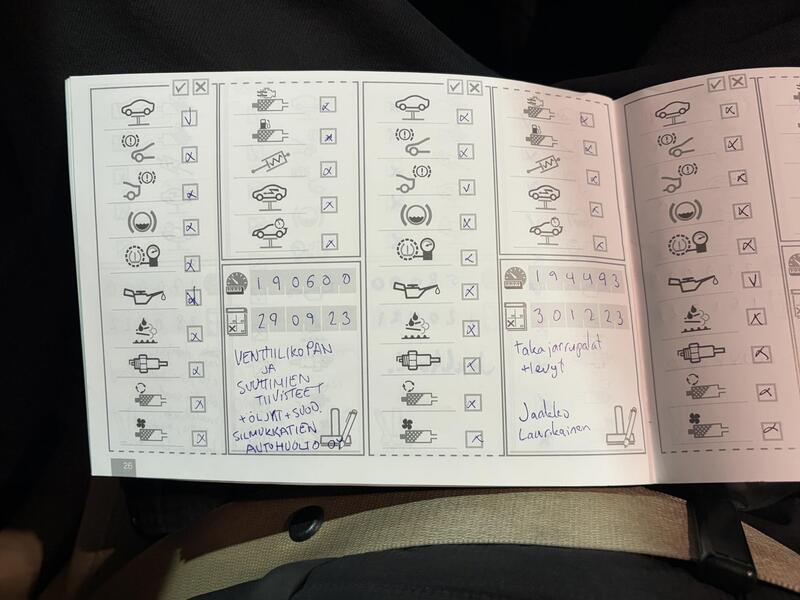 190600
29 09 23
VENTTIILIKOPAN
JA
SUUTTIMIEN
TIIVISTEET
+ ÖLJYT + SUOD.
SILMUKKATIEN
AUTOHUOLTO OY
194493
30 12 23
takajarrupalat
+ levyt
Jaakko
Laurikainen
26